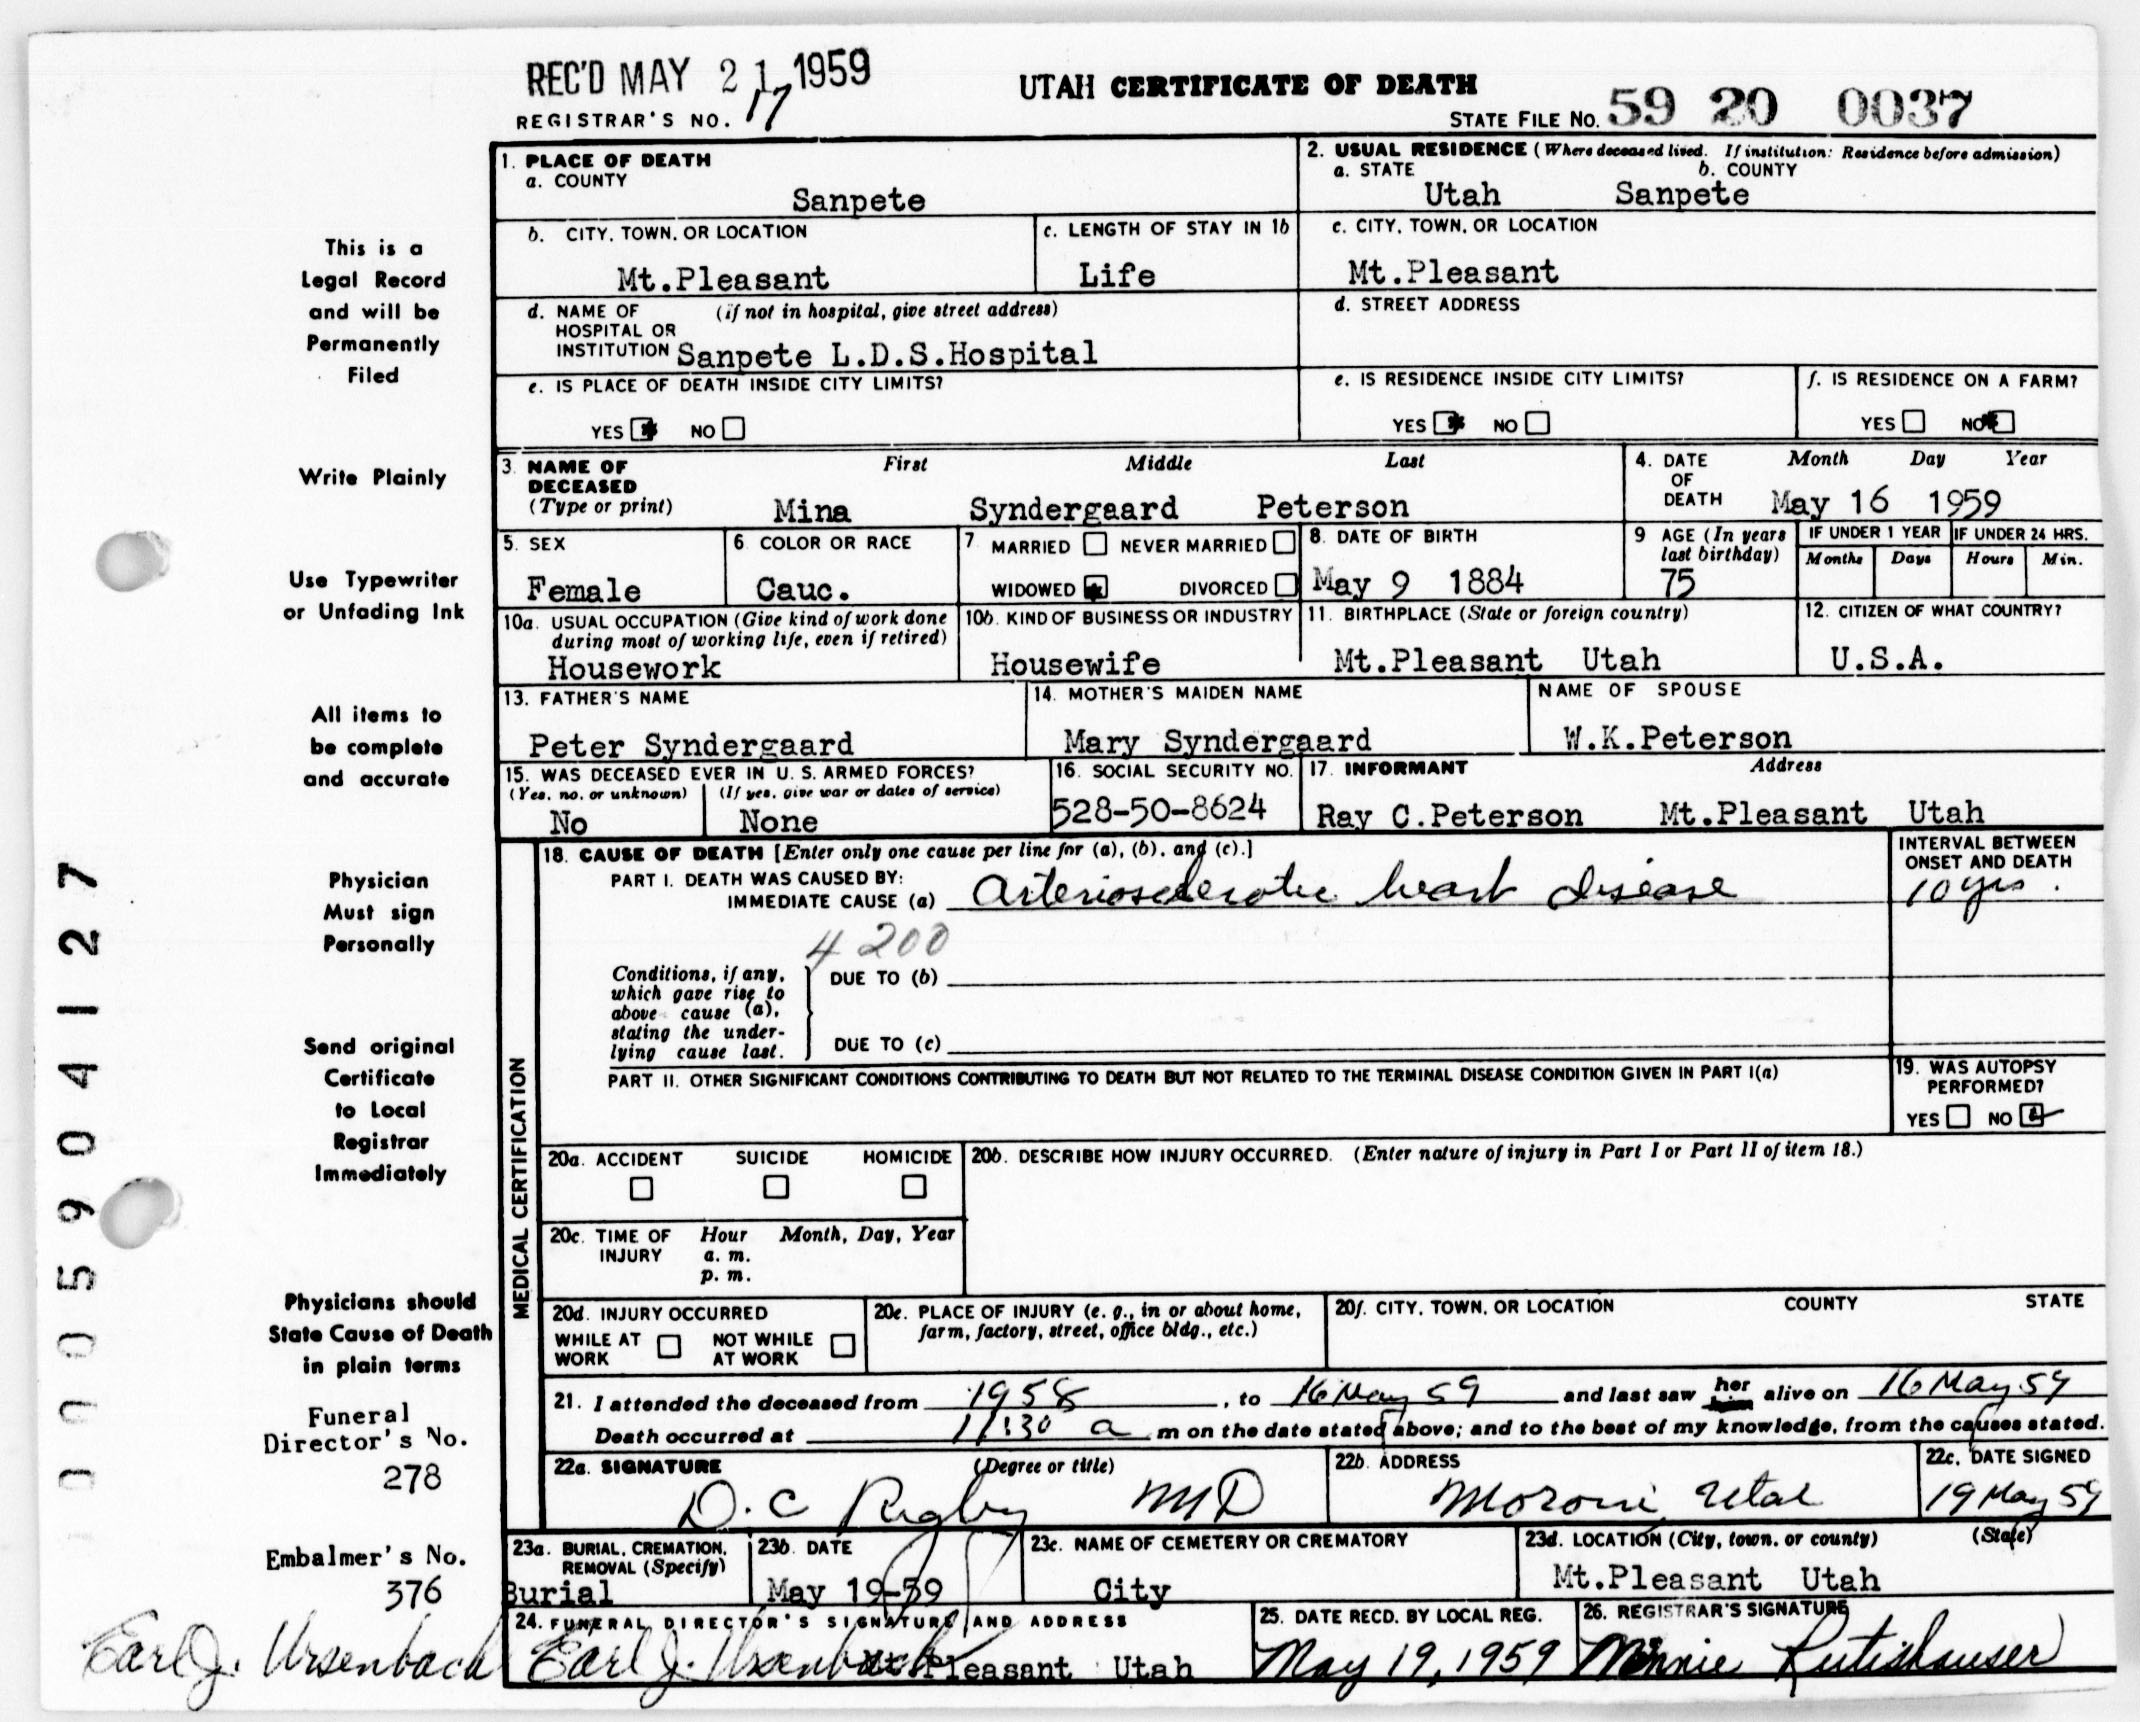 REC'D MAY 21 1959
UTAH CERTIFICATE OF DEATH
REGISTRAR'S NO. 17
STATE FILE NO. 59 20 0037
1. PLACE OF DEATH
a. COUNTY
Sanpete
2. USUAL RESIDENCE (Where deceased lived. If institution: Residence before admission)
a. STATE b. COUNTY
Utah Sanpete
b. CITY, TOWN, OR LOCATION
Mt.Pleasant
c. LENGTH OF STAY IN 1b
Life
c. CITY, TOWN, OR LOCATION
Mt.Pleasant
d. NAME OF (if not in hospital, give street address)
HOSPITAL OR
INSTITUTION Sanpete L.D.S.Hospital
d. STREET ADDRESS
e. IS PLACE OF DEATH INSIDE CITY LIMITS?
YES NO
e. IS RESIDENCE INSIDE CITY LIMITS?
YES NO
f. IS RESIDENCE ON A FARM?
YES NO
3. NAME OF First Middle Last
DECEASED
(Type or print) Mina Syndergaard Peterson
4. DATE Month Day Year
OF
DEATH May 16 1959
5. SEX
Female
6. COLOR OR RACE
Cauc.
7. MARRIED NEVER MARRIED
WIDOWED DIVORCED
8. DATE OF BIRTH
May 9 1884
9 AGE (In years
last birthday)
75
IF UNDER 1 YEAR
Months Days
IF UNDER 24 HRS.
Hours Min.
10a. USUAL OCCUPATION (Give kind of work done
during most of working life, even if retired)
Housework
10b. KIND OF BUSINESS OR INDUSTRY
Housewife
11. BIRTHPLACE (State or foreign country)
Mt.Pleasant Utah
12. CITIZEN OF WHAT COUNTRY?
U.S.A.
13. FATHER'S NAME
Peter Syndergaard
14. MOTHER'S MAIDEN NAME
Mary Syndergaard
NAME OF SPOUSE
W.K.Peterson
15. WAS DECEASED EVER IN U. S. ARMED FORCES?
(Yes, no, or unknown) (If yes, give war or dates of service)
No None
16. SOCIAL SECURITY NO.
528-50-8624
17. INFORMANT Address
Ray C.Peterson Mt.Pleasant Utah
MEDICAL CERTIFICATION
18. CAUSE OF DEATH [Enter only one cause per line for (a), (b), and (c).]
PART I. DEATH WAS CAUSED BY:
IMMEDIATE CAUSE (a) Arteriosclerotic heart disease
INTERVAL BETWEEN
ONSET AND DEATH
10 yrs.
4200
Conditions, if any,
which gave rise to
above cause (a),
stating the under-
lying cause last.
DUE TO (b)
DUE TO (c)
PART II. OTHER SIGNIFICANT CONDITIONS CONTRIBUTING TO DEATH BUT NOT RELATED TO THE TERMINAL DISEASE CONDITION GIVEN IN PART I(a)
19. WAS AUTOPSY
PERFORMED?
YES NO
20a. ACCIDENT SUICIDE HOMICIDE
20b. DESCRIBE HOW INJURY OCCURRED. (Enter nature of injury in Part I or Part II of item 18.)
20c. TIME OF Hour Month, Day, Year
INJURY a. m.
p. m.
20d. INJURY OCCURRED
WHILE AT WORK NOT WHILE AT WORK
20e. PLACE OF INJURY (e. g., in or about home,
farm, factory, street, office bldg., etc.)
20f. CITY, TOWN, OR LOCATION COUNTY STATE
21. I attended the deceased from 1958, to 16 May 59 and last saw her him alive on 16 May 59
Death occurred at 11:30 a m on the date stated above; and to the best of my knowledge, from the causes stated.
22a. SIGNATURE (Degree or title)
D. C Rigby MD
22b. ADDRESS
Moroni Utah
22c. DATE SIGNED
19 May 59
23a. BURIAL, CREMATION,
REMOVAL (Specify)
Burial
23b. DATE
May 19-59
23c. NAME OF CEMETERY OR CREMATORY
City
23d. LOCATION (City, town, or county) (State)
Mt.Pleasant Utah
24. FUNERAL DIRECTOR'S SIGNATURE AND ADDRESS
Earl J. Ursenbach Mt.Pleasant Utah
25. DATE RECD. BY LOCAL REG.
May 19, 1959
26. REGISTRAR'S SIGNATURE
Minnie Rutishauser
This is a
Legal Record
and will be
Permanently
Filed
Write Plainly
Use Typewriter
or Unfading Ink
All items to
be complete
and accurate
Physician
Must sign
Personally
Send original
Certificate
to Local
Registrar
Immediately
Physicians should
State Cause of Death
in plain terms
Funeral
Director's No.
278
Embalmer's No.
376
Earl J. Ursenbach
0005904127